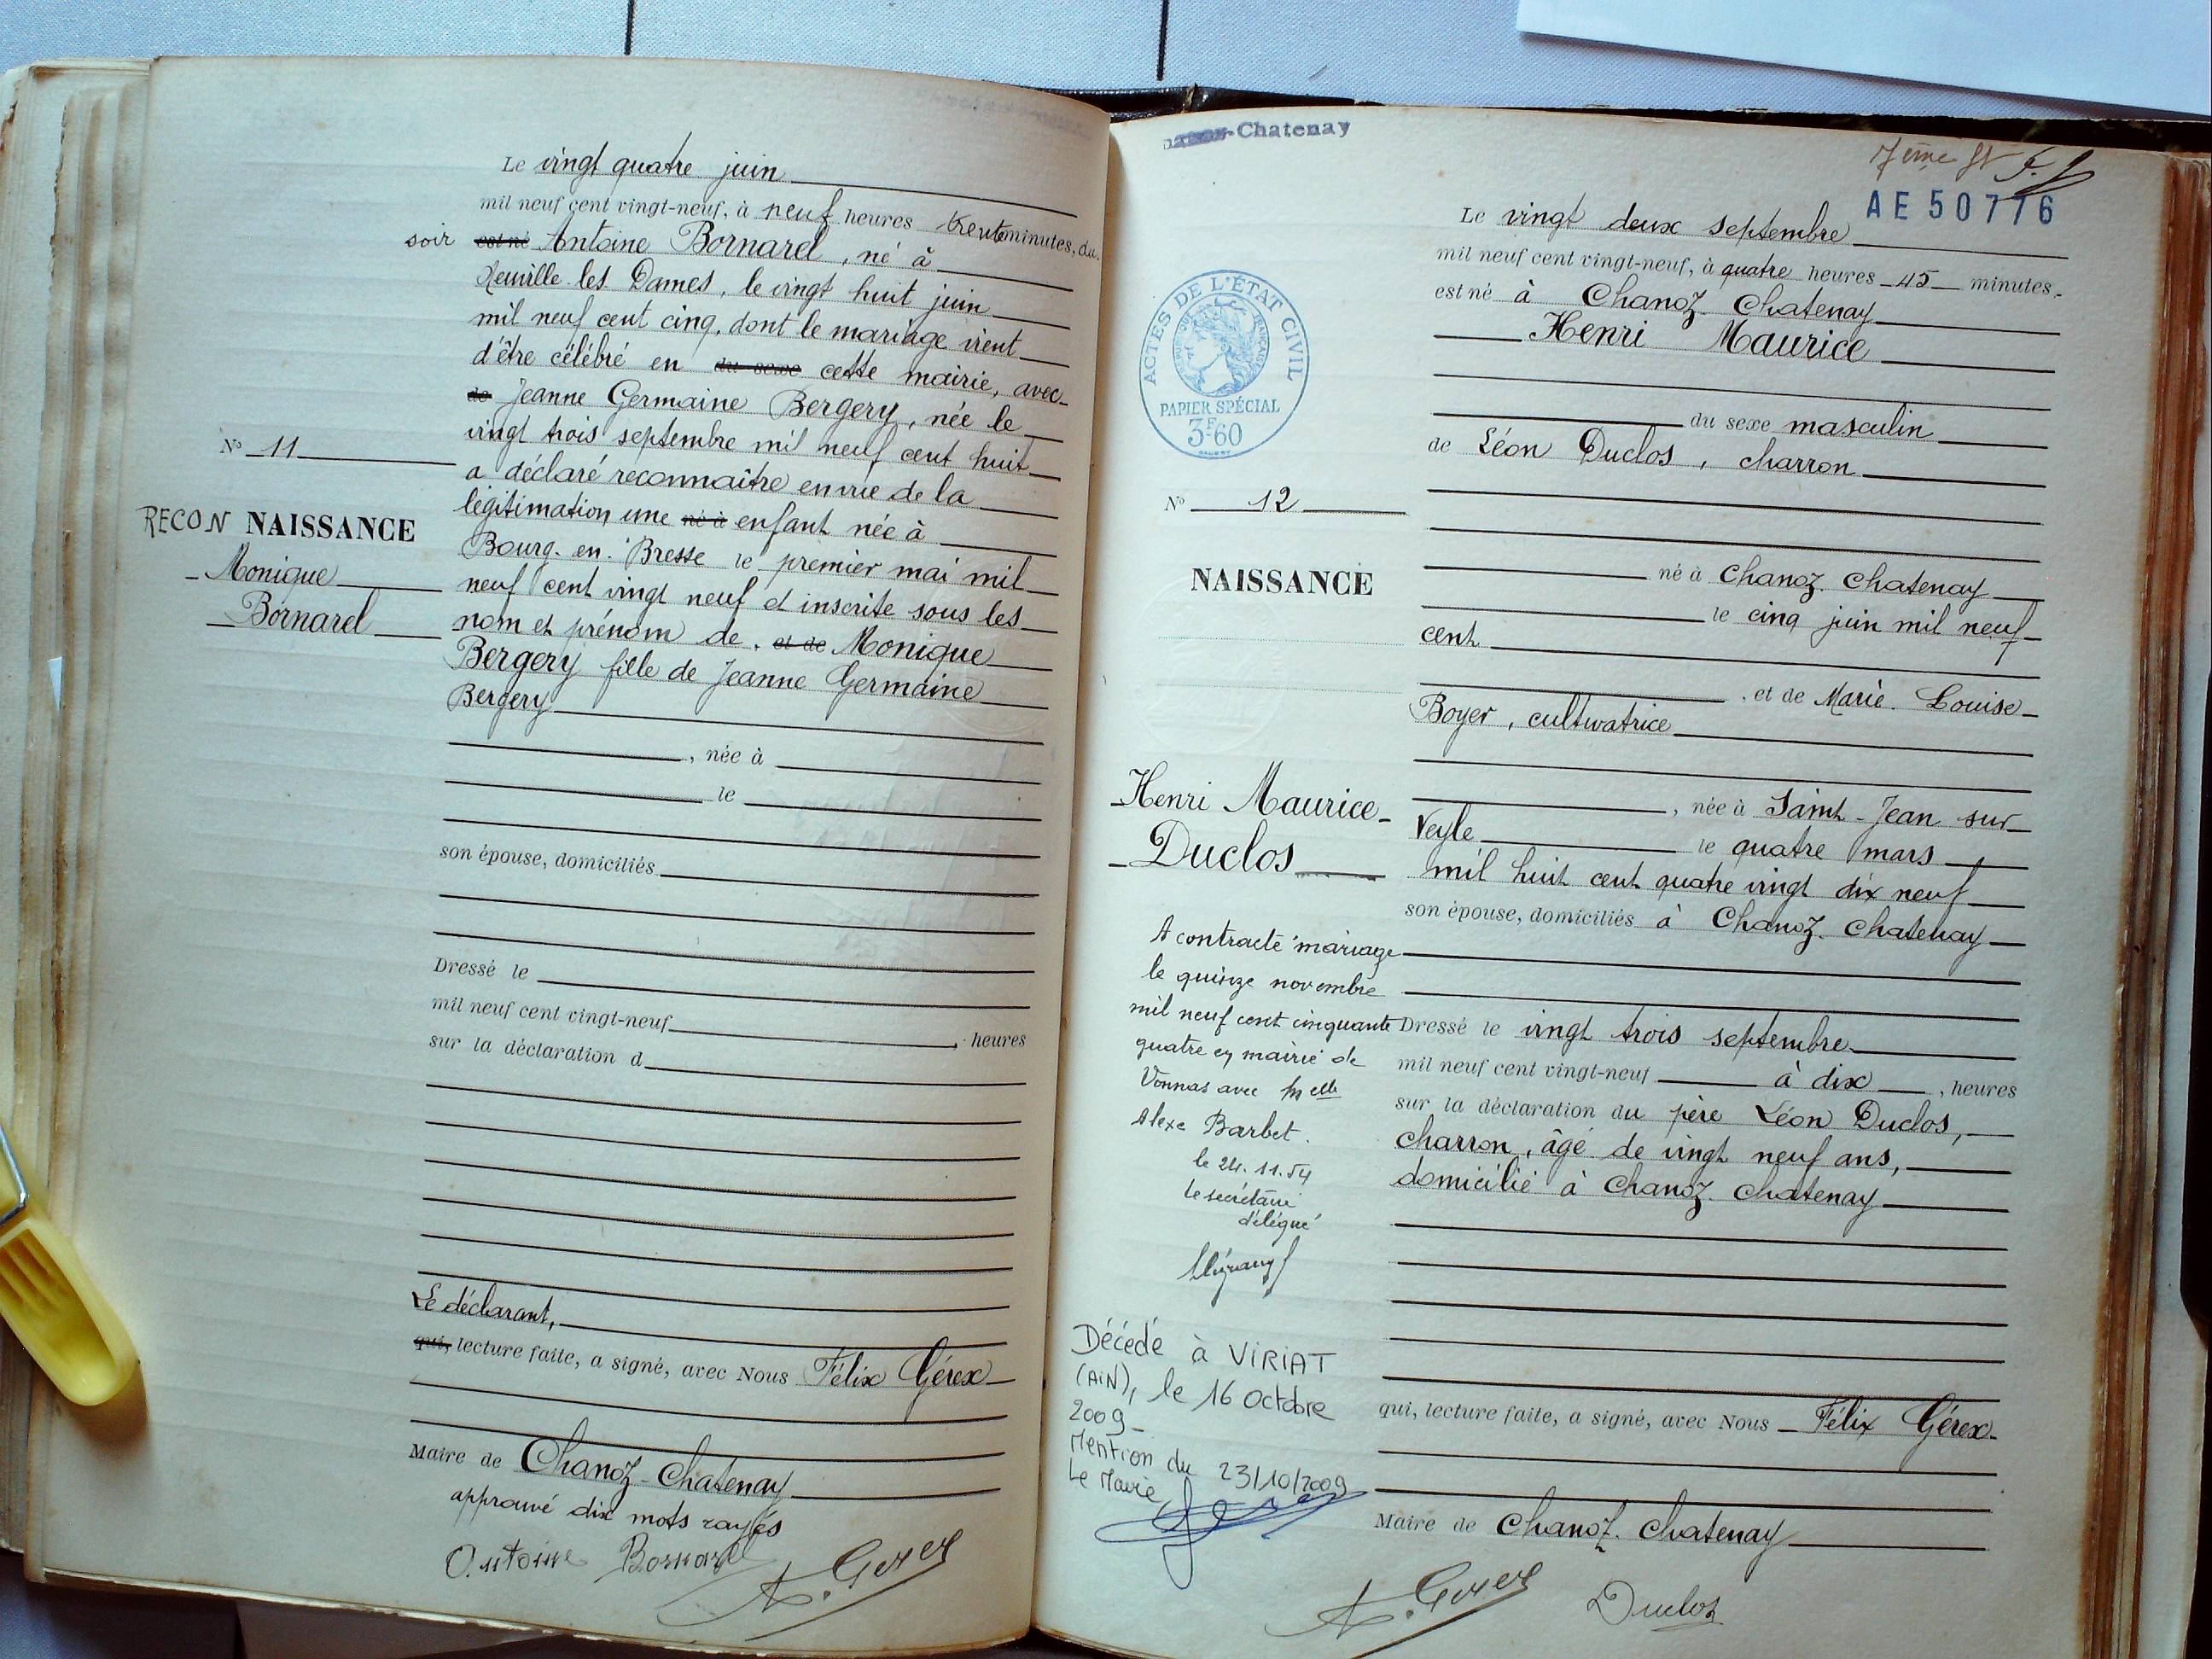 Le vingt quatre juin
mil neuf cent vingt-neuf, à neuf heures trente minutes, du
soir est né Antoine Bornarel, né à
Neuville les Dames, le vingt huit juin
mil neuf cent cinq, dont le mariage vient
d'être célébré en du sexe cette mairie, avec
de Jeanne Germaine Bergery, née le
vingt trois septembre mil neuf cent huit
a déclaré reconnaître en vue de la
légitimation une né à enfant née à
Bourg-en-Bresse le premier mai mil
neuf cent vingt neuf et inscrite sous les
nom et prénom de, et de Monique
Bergery fille de Jeanne Germaine
Bergery
, née à
le
son épouse, domiciliés
Dressé le
mil neuf cent vingt-neuf , heures
sur la déclaration d
Le déclarant,
qui, lecture faite, a signé, avec Nous Félix Gérex
Maire de Chanoz-Chatenay
approuvé dix mots rayés
Antoine Bornarel
Gerex
N° 11
RECON NAISSANCE
Monique
Bornarel
-Chatenay
7ème
AE 50776
ACTES DE L'ÉTAT CIVIL
PAPIER SPÉCIAL
3F60
N° 12
NAISSANCE
Henri Maurice
Duclos
A contracté mariage
le quinze novembre
mil neuf cent cinquante
quatre en mairie de
Vonnas avec Melle
Alexe Barbet.
le 24.11.54
Le secrétaire
délégué
Décédé à VIRIAT
(AIN), le 16 octobre
2009
Mention du 23/10/2009
Le Maire,
Le vingt deux septembre
mil neuf cent vingt-neuf, à quatre heures 45 minutes,
est né à Chanoz-Chatenay
Henri Maurice
du sexe masculin
de Léon Duclos, charron
né à Chanoz-Chatenay
le cinq juin mil neuf
cent
, et de Marie-Louise
Boyer, cultivatrice
, née à Saint-Jean sur
Veyle le quatre mars
mil huit cent quatre vingt dix neuf
son épouse, domiciliés à Chanoz-Chatenay
Dressé le vingt trois septembre
mil neuf cent vingt-neuf à dix , heures
sur la déclaration du père Léon Duclos,
charron, âgé de vingt neuf ans,
domicilié à Chanoz-Chatenay
qui, lecture faite, a signé, avec Nous Félix Gérex
Maire de Chanoz-Chatenay
Gerex
Duclos